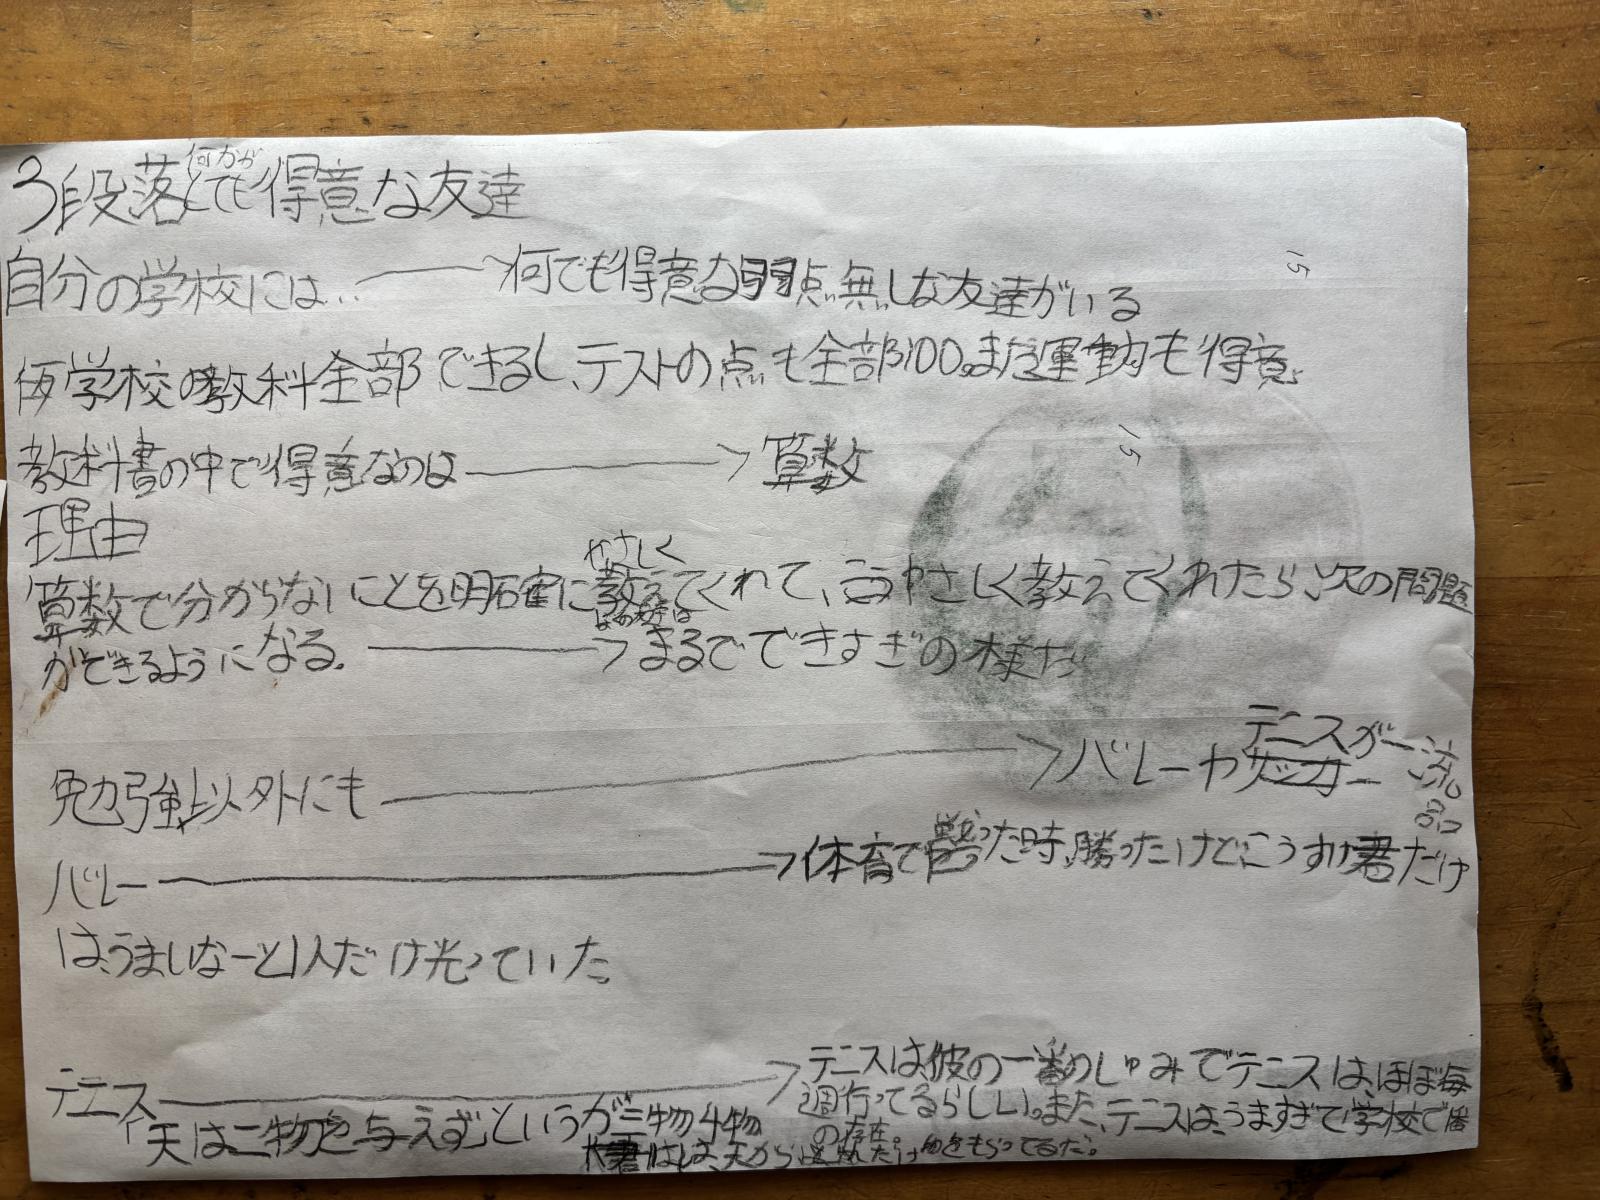 何かが
3段落とても得意な友達
自分の学校には… → 何でも得意な弱点無しな友達がいる
15
仮学校の教科全部できるし、テストの点も全部100。また運動も得意。
教科書の中で得意なのは → 算数
15
理由
やさしく
算数で分からないことを明確に教えてくれて、やさしく教えてくれたら、次の問題
ができるようになる。 → まるでできすぎの様だ
テニスが一流品
勉強以外にも → バレーや
バレー → 体育で戦った時、勝ったけどこうすけ君だけ
は、うまいなーと1人だけ光っていた。
テニス → テニスは彼の一番のしゅみでテニスは、ほぼ毎
週行ってるらしい。また、テニスは、うますぎて学校で
の存在。
天は二物を与えずというが三物4物
天から をもらってるだ。